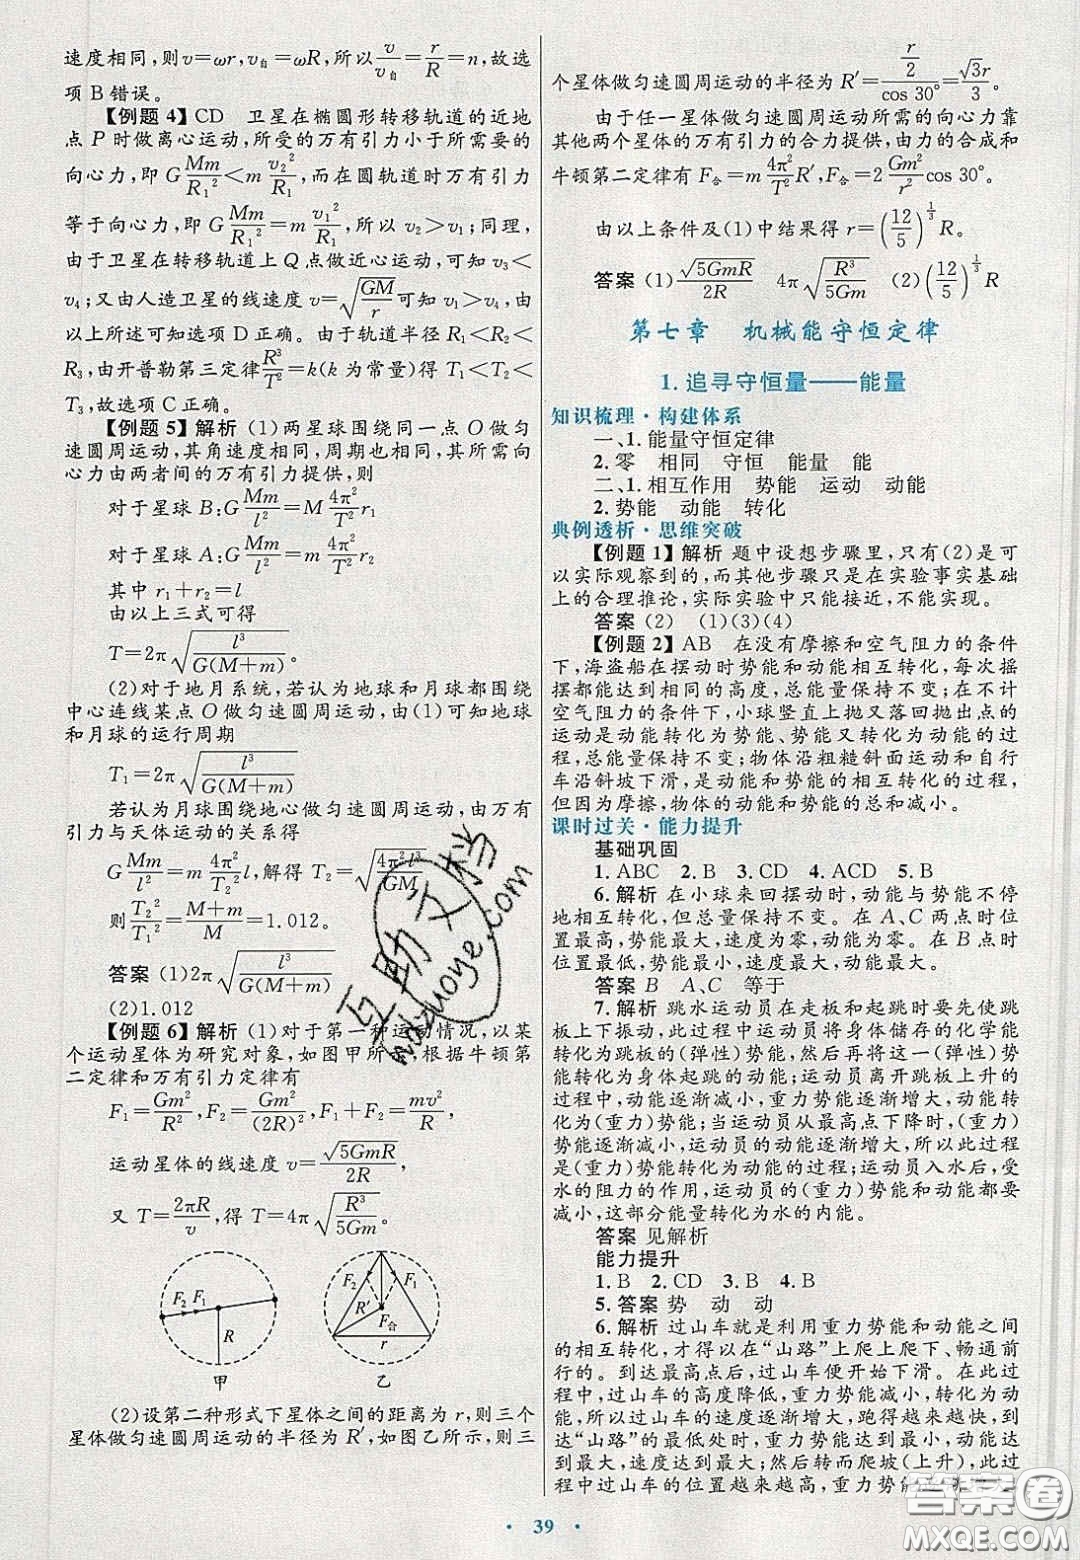 速度相同,则v=ωr,v自=ωR,所以v/v自=r/R=n,故选
项B错误。
【例题4】CD 卫星在椭圆形转移轨道的近地
点P时做离心运动,所受的万有引力小于所需要的
向心力,即G Mm/R₁²<m v₂²/R₁,而在圆轨道时万有引力
等于向心力,即G Mm/R₁²=m v₁²/R₁,所以v₂>v₁;同理,
由于卫星在转移轨道上Q点做近心运动,可知v₃<
v₄;又由人造卫星的线速度v=√(GM/r)可知v₁>v₄,由
以上所述可知选项D正确。由于轨道半径R₁<R₂<
R₃,由开普勒第三定律R³/T²=k(k为常量)得T₁<T₂<
T₃,故选项C正确。
【例题5】解析 (1)两星球围绕同一点O做匀
速圆周运动,其角速度相同,周期也相同,其所需向
心力由两者间的万有引力提供,则
对于星球B:G Mm/l²=M 4π²/T² r₁
对于星球A:G Mm/l²=m 4π²/T² r₂
其中r₁+r₂=l
由以上三式可得
T=2π√(l³/G(M+m))。
(2)对于地月系统,若认为地球和月球都围绕
中心连线某点O做匀速圆周运动,由(1)可知地球
和月球的运行周期
T₁=2π√(l³/G(M+m))
若认为月球围绕地心做匀速圆周运动,由万有
引力与天体运动的关系得
G Mm/l²=m 4π²/T₂² l,解得T₂=√(4π²l³/GM)
则T₂²/T₁²=(M+m)/M=1.012。
答案 (1)2π√(l³/G(M+m))
(2)1.012
【例题6】解析 (1)对于第一种运动情况,以某
个运动星体为研究对象,如图甲所示,根据牛顿第
二定律和万有引力定律有
F₁=Gm²/R²,F₂=Gm²/(2R)²,F₁+F₂=mv²/R,
运动星体的线速度v=√(5GmR)/2R,
又T=2πR/v,得T=4π√(R³/5Gm)。
F₂ F₁
R
甲
F₂ F₁
R′
F合
r
乙
(2)设第二种形式下星体之间的距离为r,则三个
星体做匀速圆周运动的半径为R′,如图乙所示,则三
个星体做匀速圆周运动的半径为R′=(r/2)/cos 30°=√3r/3。
由于任一星体做匀速圆周运动所需的向心力靠
其他两个星体的万有引力的合力提供,由力的合成和
牛顿第二定律有F合=m 4π²/T² R′,F合=2 Gm²/r² cos 30°。
由以上条件及(1)中结果得r=(12/5)^(1/3) R。
答案 (1)√(5GmR)/2R 4π√(R³/5Gm) (2)(12/5)^(1/3) R
第七章 机械能守恒定律
1.追寻守恒量——能量
知识梳理·构建体系
一、1.能量守恒定律
2.零 相同 守恒 能量 能
二、1.相互作用 势能 运动 动能
2.势能 动能 转化
典例透析·思维突破
【例题1】解析 题中设想步骤里,只有(2)是可
以实际观察到的,而其他步骤只是在实验事实基础
上的合理推论,实际实验中只能接近,不能实现。
答案 (2) (1)(3)(4)
【例题2】AB 在没有摩擦和空气阻力的条件
下,海盗船在摆动时势能和动能相互转化,每次摇
摆都能达到相同的高度,总能量保持不变;在不计
空气阻力的条件下,小球竖直上抛又落回抛出点的
运动是动能转化为势能、势能又转化为动能的过
程,总能量保持不变;物体沿粗糙斜面运动和自行
车沿斜坡下滑,是动能和势能的相互转化的过程,
但因为摩擦,物体的动能和势能的总和减小。
课时过关·能力提升
基础巩固
1.ABC 2.B 3.CD 4.ACD 5.B
6.解析 在小球来回摆动时,动能与势能不停
地相互转化,但总能量保持不变。在A、C两点时位
置最高,势能最大,速度为零,动能为零。在B点时
位置最低,势能最小,速度最大,动能最大。
答案 B A、C 等于
7.解析 跳水运动员在走板和起跳时要先使跳
板上下振动,此过程中运动员将身体储存的化学能
转化为跳板的(弹性)势能,然后再将这一(弹性)势
能转化为身体起跳的动能;运动员离开跳板上升的
过程中,动能逐渐减小,重力势能逐渐增大,动能转化
为重力势能;当运动员从最高点下降时,(重力)
势能逐渐减小,运动员的动能逐渐增大,所以此过程
是(重力)势能转化为动能的过程;运动员入水后,受
水的阻力的作用,运动员的(重力)势能和动能都要
减小,这部分能量转化为水的内能。
答案 见解析
能力提升
1.B 2.CD 3.B 4.B
5.答案 势 动 动
6.解析 过山车就是利用重力势能和动能之间
的相互转化,才得以在“山路”上爬上爬下、畅通前
行的。到达最高点后,过山车便开始下滑。在此过
程中,过山车的高度降低,重力势能减小,转化为动
能,所以动能越来越大,跑得越来越快,到
达“山路”的最低处时,重力势能达到最小,动能达
到最大,速度也最大;然后转而爬坡(上升),在此过
程中过山车的位置越来越高,重力势能
39
互助文档
hdzuoye.com
答案卷
MXQE.COM